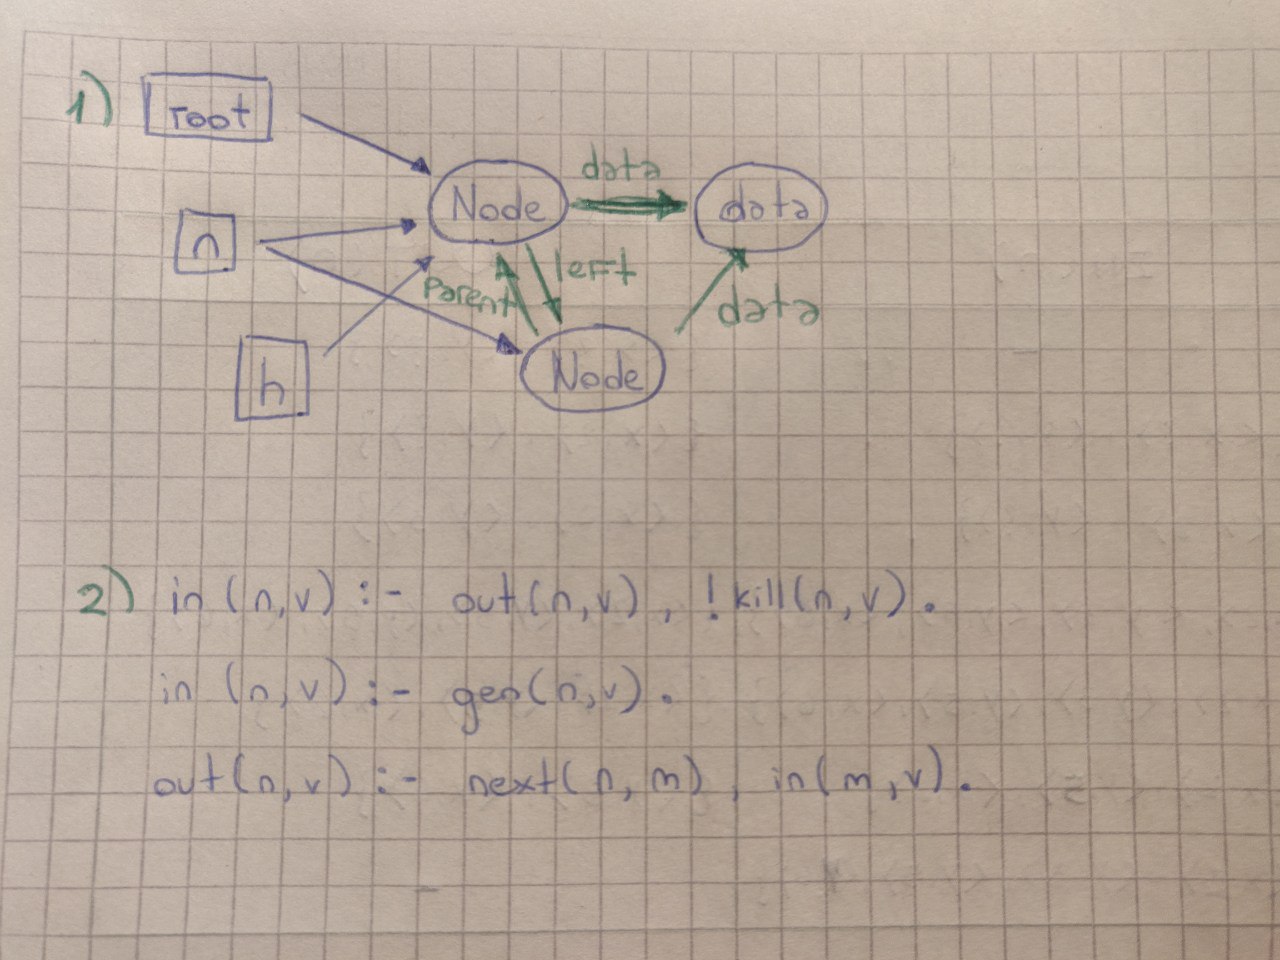 1) root
Node data data
n
left
Parent
data
h Node
2) in (n,v) :- out(n,v) , !kill(n,v).
in (n,v) :- gen(n,v).
out(n,v) :- next(n,m) , in(m,v).